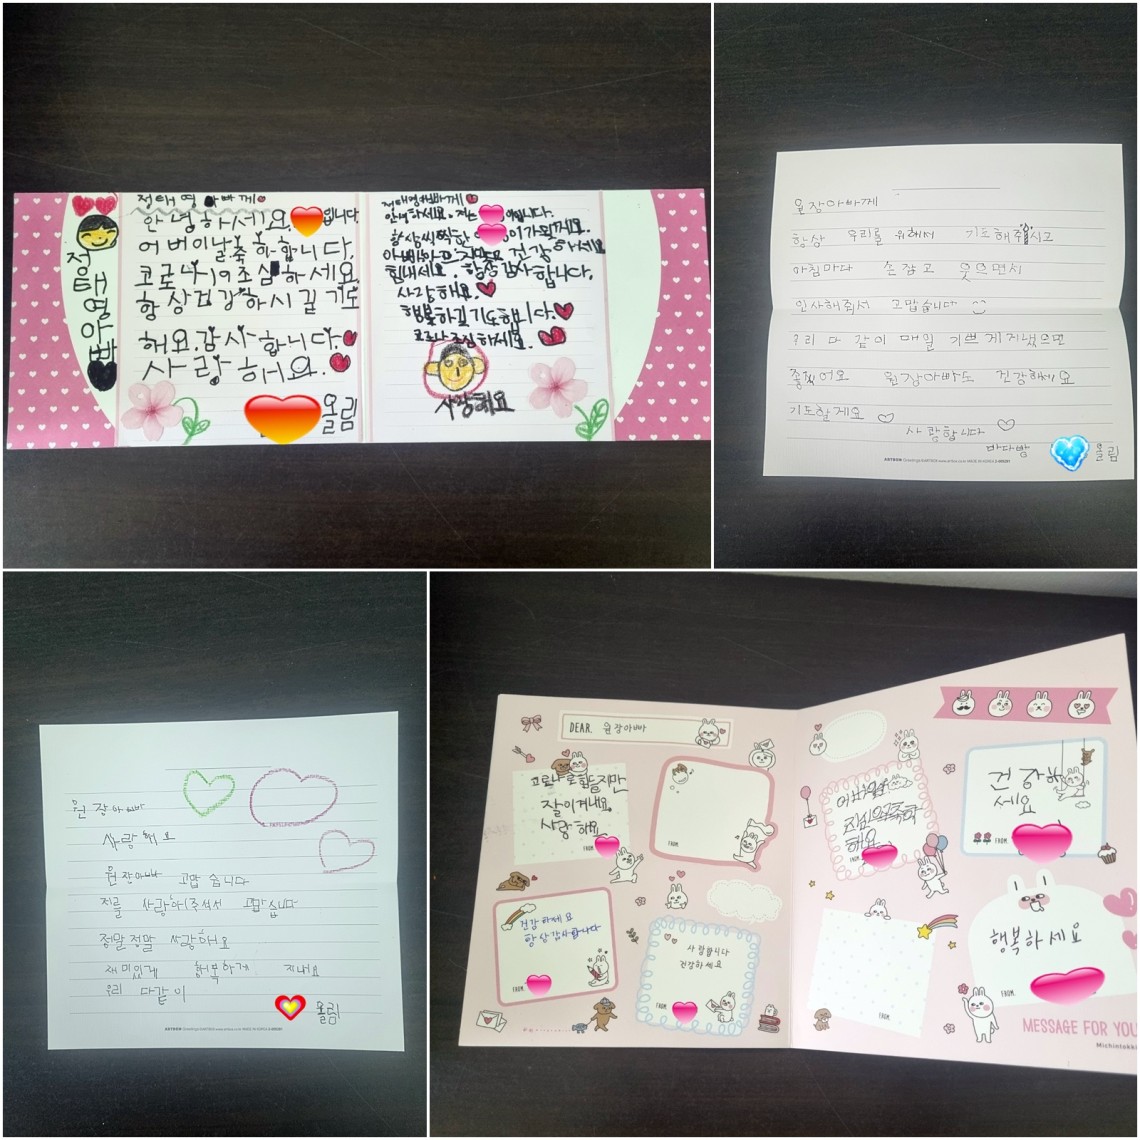 정태영아빠
정태영 아빠께
안녕하세요. 입니다.
어버이날축하합니다.
코로나19조심하세요.
항상건강하시길 기도
해요.감사합니다.
사랑해요.
올림
정태영아빠께
안녕하세요. 저는 입니다.
항상씩씩한 이가될게요.
아빠 건강하세요
힘내세요. 항상감사합니다.
사랑해요.
행복하길기도합니다.
코로나조심하세요.
사랑해요
원장아빠께
항상 우리를 위해서 기도해주시고
아침마다 손잡고 웃으면서
인사해줘서 고맙습니다
우리 다 같이 매일 기쁘게지냈으면
좋겠어요 원장아빠도 건강하세요
기도할게요
사랑합니다
바다방
올림
ARTBOX
원장아빠
사랑해요
원장아빠 고맙습니다
저를 사랑해주셔서 고맙습니다
정말정말 사랑해요
재미있게 행복하게 지내요
우리 다같이
올림
ARTBOX
DEAR. 원장아빠
코로나로힘들지만
잘이겨내요.
사랑해요
FROM.
FROM.
건강하세요
항상감사합니다
FROM.
사랑합니다
건강하세요
FROM.
해요
FROM.
건강하
세요
FROM.
행복하세요
FROM.
FROM.
MESSAGE FOR YOU
Michintokki